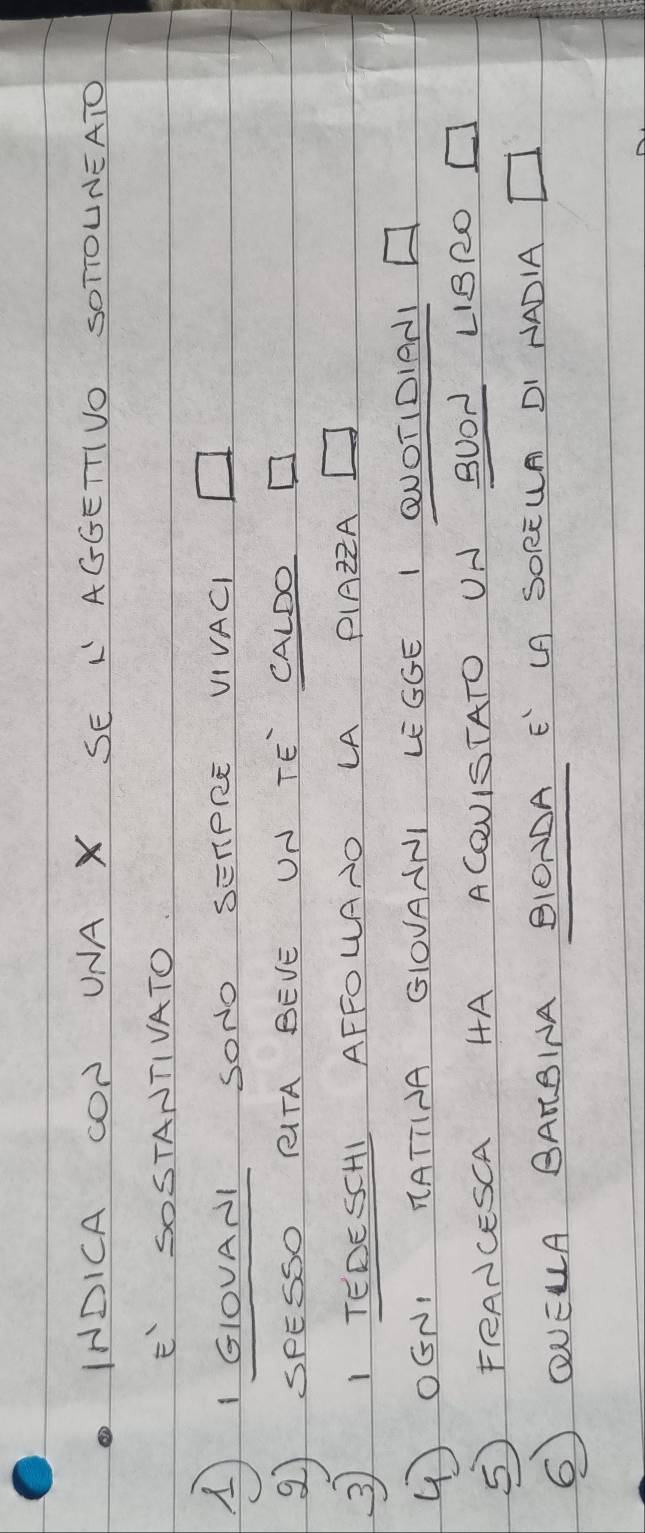 • INDICA CON UNA X SE L'AGGETTIVO SOTTOLINEATO
E' SOSTANTIVATO.
1) I GIOVANI SONO SEMPRE VIVACI □
2) SPESSO RITA BEVE UN TE' CALDO □
3) I TEDESCHI AFFOLLANO LA PIAZZA □
4) OGNI MATTINA GIOVANNI LEGGE I QUOTIDIANI □
5) FRANCESCA HA ACQUISTATO UN BUON LIBRO □
6) QUELLA BAMBINA BIONDA E' LA SORELLA DI NADIA □